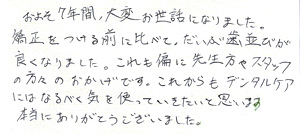 およそ7年間，大変お世話になりました。
矯正をつける前に比べて、だいぶ歯並びが
良くなりました。これも偏に先生方やスタッフ
の方々のおかげです。これからもデンタルケア
にはなるべく気を使っていきたいと思います
本当にありがとうございました。